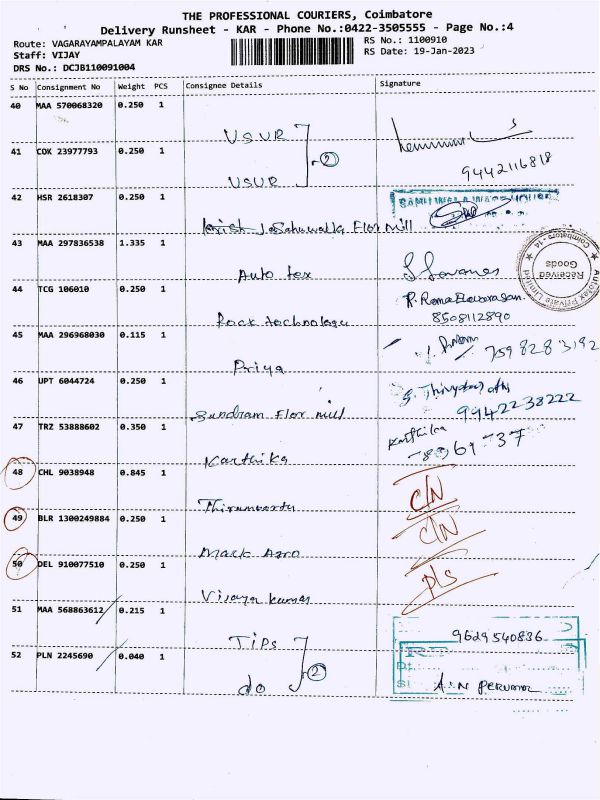 THE PROFESSIONAL COURIERS, Coimbatore
Delivery Runsheet - KAR - Phone No.:0422-3505555 - Page No.:4
Route: VAGARAYAMPALAYAM KAR
RS No.: 1100910
Staff: VIJAY
RS Date: 19-Jan-2023
DRS No.: DCJB110091004
S No Consignment No Weight PCS Consignee Details Signature
40 MAA 570068320 0.250 1
VSUR
41 COK 23977793 0.250 1
2
9442116818
VSUR
42 HSR 2618307 0.250 1
Flor mill
43 MAA 297836538 1.335 1
Auto tex
Autotex Private Limited
Received Goods
Coimbatore-14
44 TCG 106010 0.250 1
8508112890
Rock technology
45 MAA 296968030 0.115 1
7598283192
Priya
46 UPT 6044724 0.250 1
9942238222
Sundram Flor mill
47 TRZ 53888602 0.350 1
Karthika
Karthika
48 CHL 9038948 0.845 1
C/N
49 BLR 1300249884 0.250 1
C/N
Mark Agro
50 DEL 910077510 0.250 1
P/S
Vijaya kumar
51 MAA 568863612 0.215 1
TIPS
9629540836
52 PLN 2245690 0.040 1
2
do